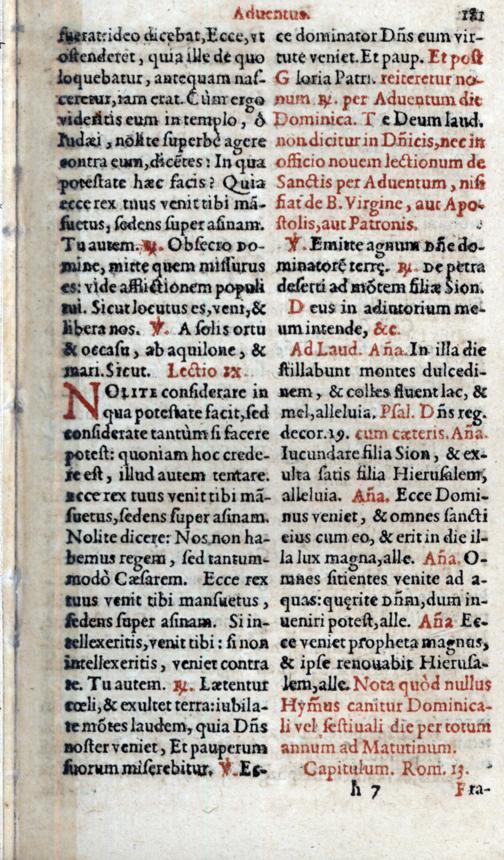 Aduentus. 181
fuerat: ideo dicebat, Ecce, vt
ostenderet, quia ille de quo
loquebatur, antequam nas-
ceretur, iam erat. Cùm ergo
videritis eum in templo, ô
Iudæi, nolite superbè agere
contra eum, dicẽtes: In qua
potestate hæc facis? Quia
ecce rex tuus venit tibi mã-
suetus, sedens super asinam.
Tu autem. ℟. Obsecro Do-
mine, mitte quem missurus
es: vide afflictionem populi
tui. Sicut locutus es, veni, &
libera nos. ℣. A solis ortu
& occasu, ab aquilone, &
mari. Sicut. Lectio IX.
NOLITE considerare in
qua potestate facit, sed
considerate tantùm si facere
potest: quoniam hoc crede-
re est, illud autem tentare.
ecce rex tuus venit tibi mã-
suetus, sedens super asinam.
Nolite dicere: Nos non ha-
bemus regem, sed tantum-
modò Cæsarem. Ecce rex
tuus venit tibi mansuetus,
sedens super asinam. Si in-
tellexeritis, venit tibi: si non
intellexeritis, veniet contra
te. Tu autem. ℟. Lætentur
cœli, & exultet terra: iubila-
te mõtes laudem, quia Dñs
noster veniet, Et pauperum
suorum miserebitur. ℣. Ec-
ce dominator Dñs cum vir-
tute veniet. Et paup. Et post
Gloria Patri. reiteretur no-
num ℟. per Aduentum die
Dominica. Te Deum laud.
non dicitur in Dñicis, nec in
officio nouem lectionum de
Sanctis per Aduentum, nisi
fiat de B. Virgine, aut Apo-
stolis, aut Patronis.
℣. Emitte agnum Dñe do-
minatorẽ terrę. ℟. De petra
deserti ad mõtem filiæ Sion.
Deus in adiutorium me-
um intende, &c.
Ad Laud. Aña. In illa die
stillabunt montes dulcedi-
nem, & colles fluent lac, &
mel, alleluia. Psal. Dñs reg.
decor. 19. cum cæteris. Aña.
Iucundare filia Sion, & ex-
ulta satis filia Hierusalem,
alleluia. Aña. Ecce Domi-
nus veniet, & omnes sancti
eius cum eo, & erit in die il-
la lux magna, alle. Aña. O-
mnes sitientes venite ad a-
quas: quęrite Dñm, dum in-
ueniri potest, alle. Aña Ec-
ce veniet propheta magnus,
& ipse renouabit Hierusa-
lem, alle. Nota quòd nullus
Hym̃us canitur Dominica-
li vel festiuali die per totum
annum ad Matutinum.
Capitulum. Rom. 13.
h 7 Fra-